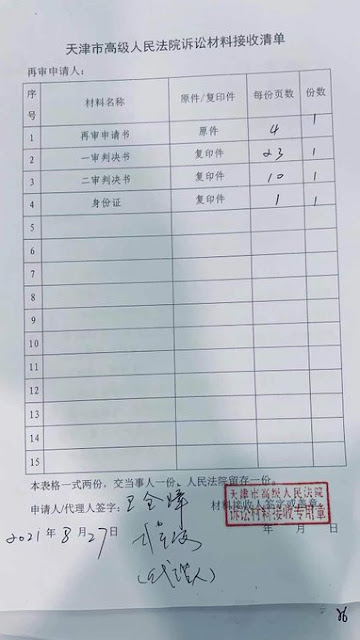 天津市高级人民法院诉讼材料接收清单
再审申请人：
序号 材料名称 原件/复印件 每份页数 份数
1 再审申请书 原件 4 1
2 一审判决书 复印件 23 1
3 二审判决书 复印件 10 1
4 身份证 复印件 1 1
5
6
7
8
9
10
11
12
13
14
15
本表格一式两份，交当事人一份，人民法院留存一份。
申请人/代理人签字：王全璋 材料接收人签字或盖章
天津市高级人民法院
诉讼材料接收专用章
2021年8月27日 年 月 日
(代理人)